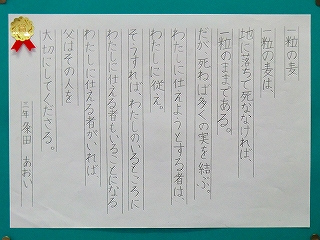 一粒の麦
一粒の麦は、
地に落ちて死ななければ、
一粒のままである。
だが、死ねば多くの実を結ぶ。
わたしに仕えようとする者は、
わたしに従え。
そうすれば、わたしのいるところに
わたしに仕える者もいることになる
わたしに仕える者がいれば
父はその人を
大切にしてくださる。
二年 条田 あおい